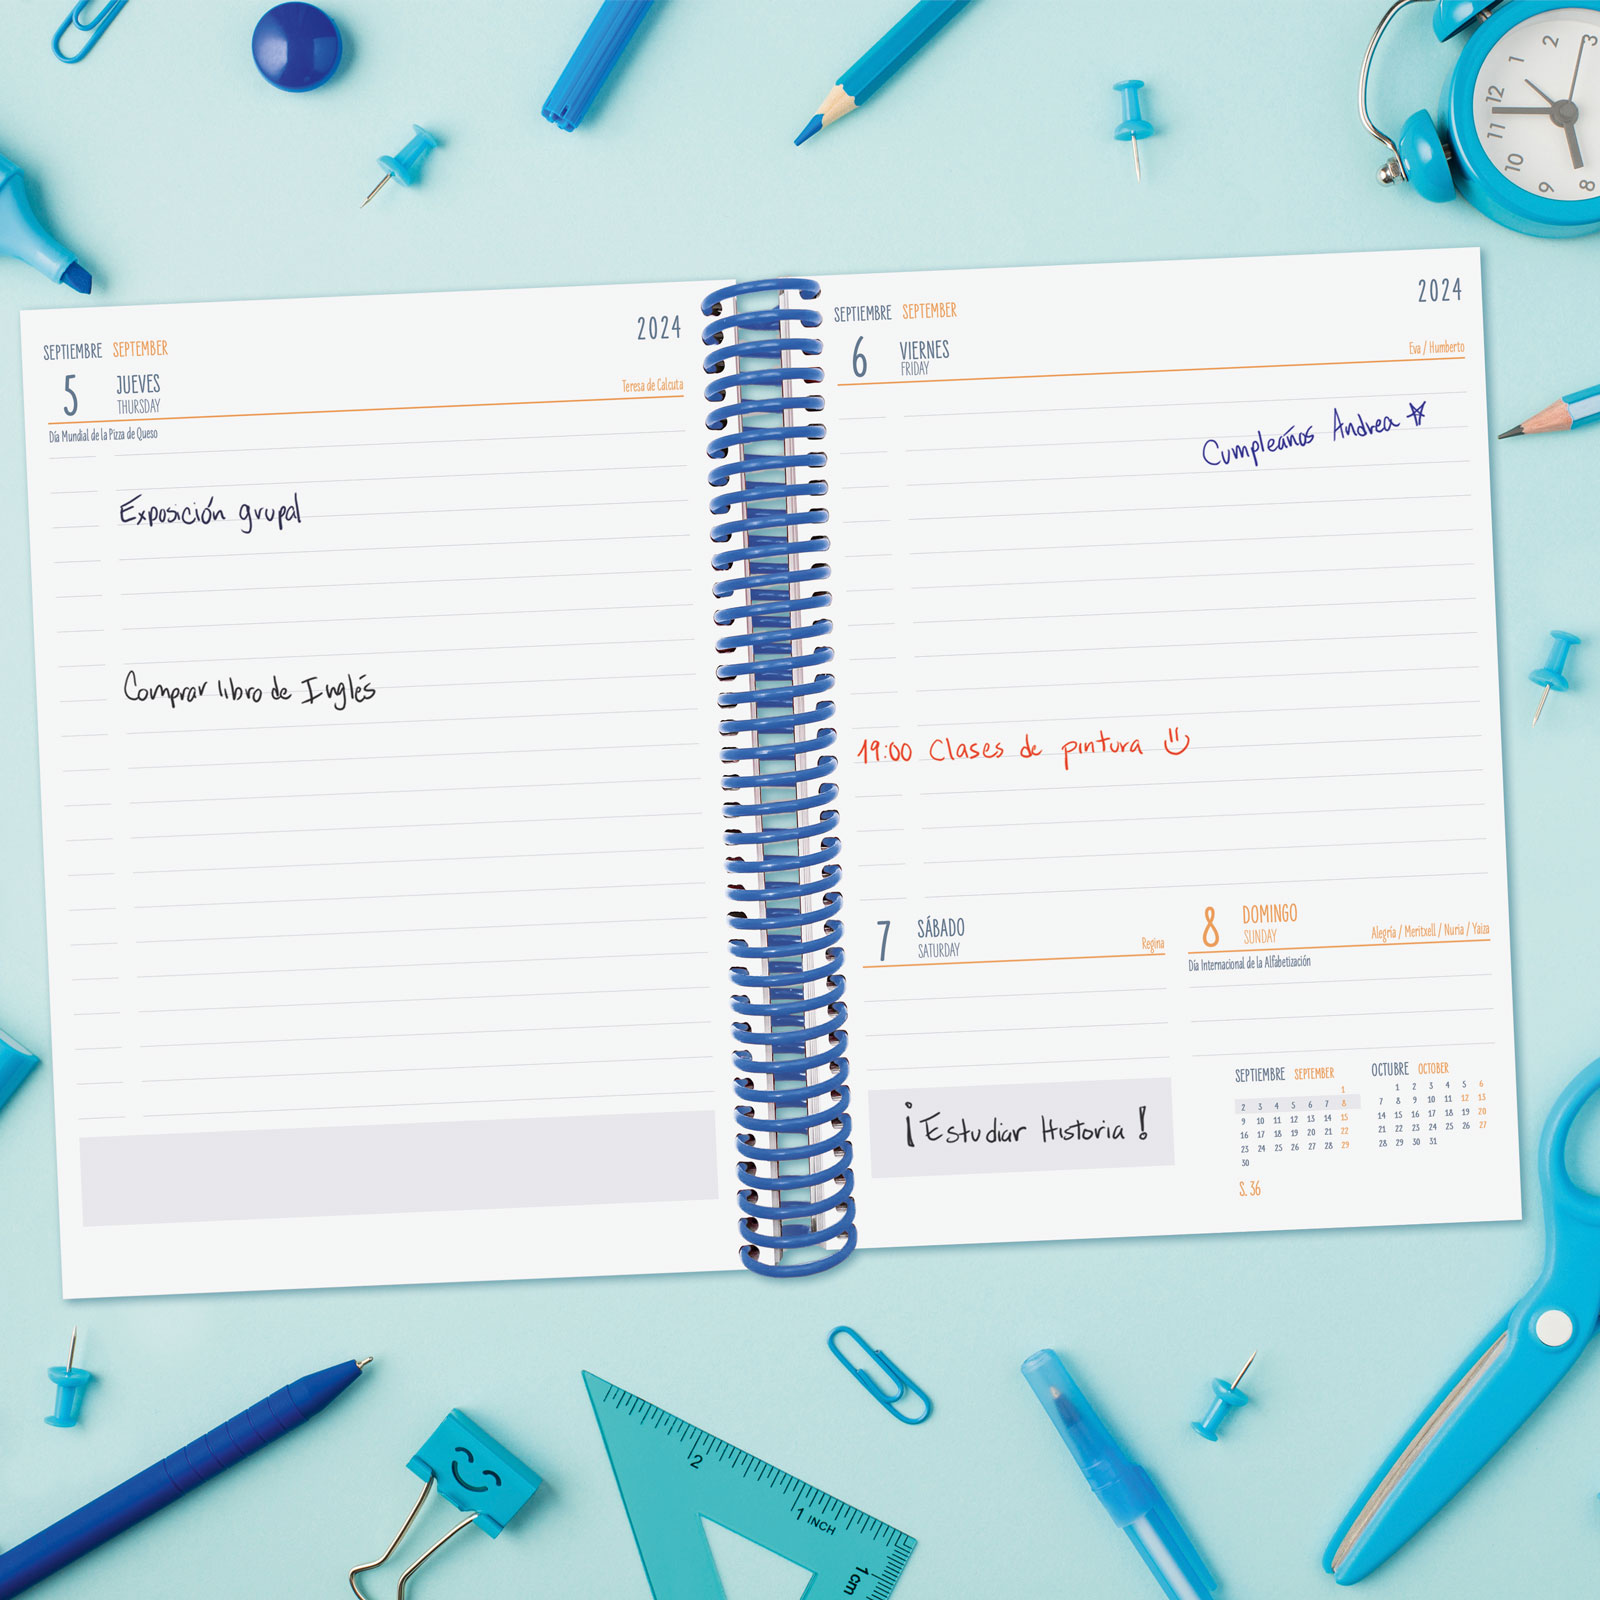 SEPTIEMBRE SEPTEMBER
2024
5 JUEVES
THURSDAY
Teresa de Calcuta
Día Mundial de la Pizza de Queso
Exposición grupal
Comprar libro de Inglés
SEPTIEMBRE SEPTEMBER
2024
6 VIERNES
FRIDAY
Eva / Humberto
Cumpleaños Andrea
19:00 Clases de pintura
7 SÁBADO
SATURDAY
Regina
¡Estudiar Historia!
8 DOMINGO
SUNDAY
Alegría / Meritxell / Nuria / Yaiza
Día Internacional de la Alfabetización
SEPTIEMBRE SEPTEMBER
1
2 3 4 5 6 7 8
9 10 11 12 13 14 15
16 17 18 19 20 21 22
23 24 25 26 27 28 29
30
S. 36
OCTUBRE OCTOBER
1 2 3 4 5 6
7 8 9 10 11 12 13
14 15 16 17 18 19 20
21 22 23 24 25 26 27
28 29 30 31
12
1
2
3
8
9
10
11
2
1 INCH
1 cm